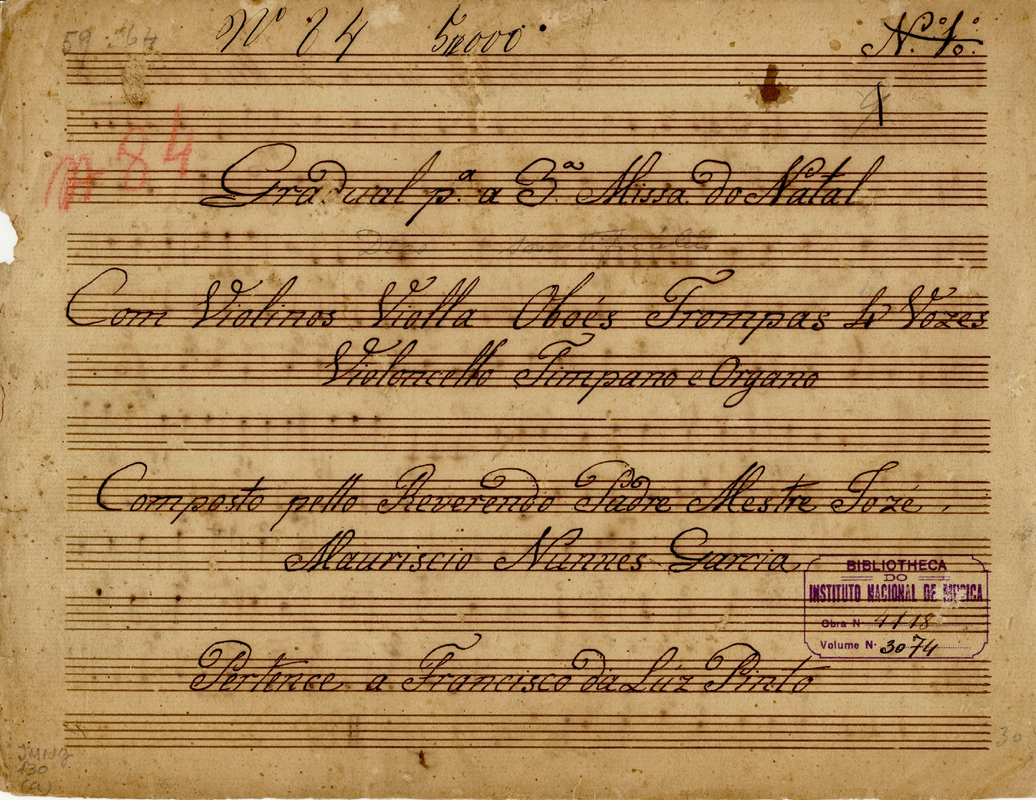 59:64 Nº 84 5#000 Nº 1º
1
m 84
Gradual p.ª a 3.ª Missa do Natal
Dies sanctificatus
Com Violinos Violla Oboés Trompas 4 Vozes
Violoncello Timpano e Organo
Composto pello Reverendo Padre Mestre Jozé
Mauriscio Nunnes Garcia
BIBLIOTHECA
DO
INSTITUTO NACIONAL DE MUSICA
Obra N 4118
Volume N· 3074
Pertence a Francisco da Lúz Pinto
JMNG
130
(a)
30